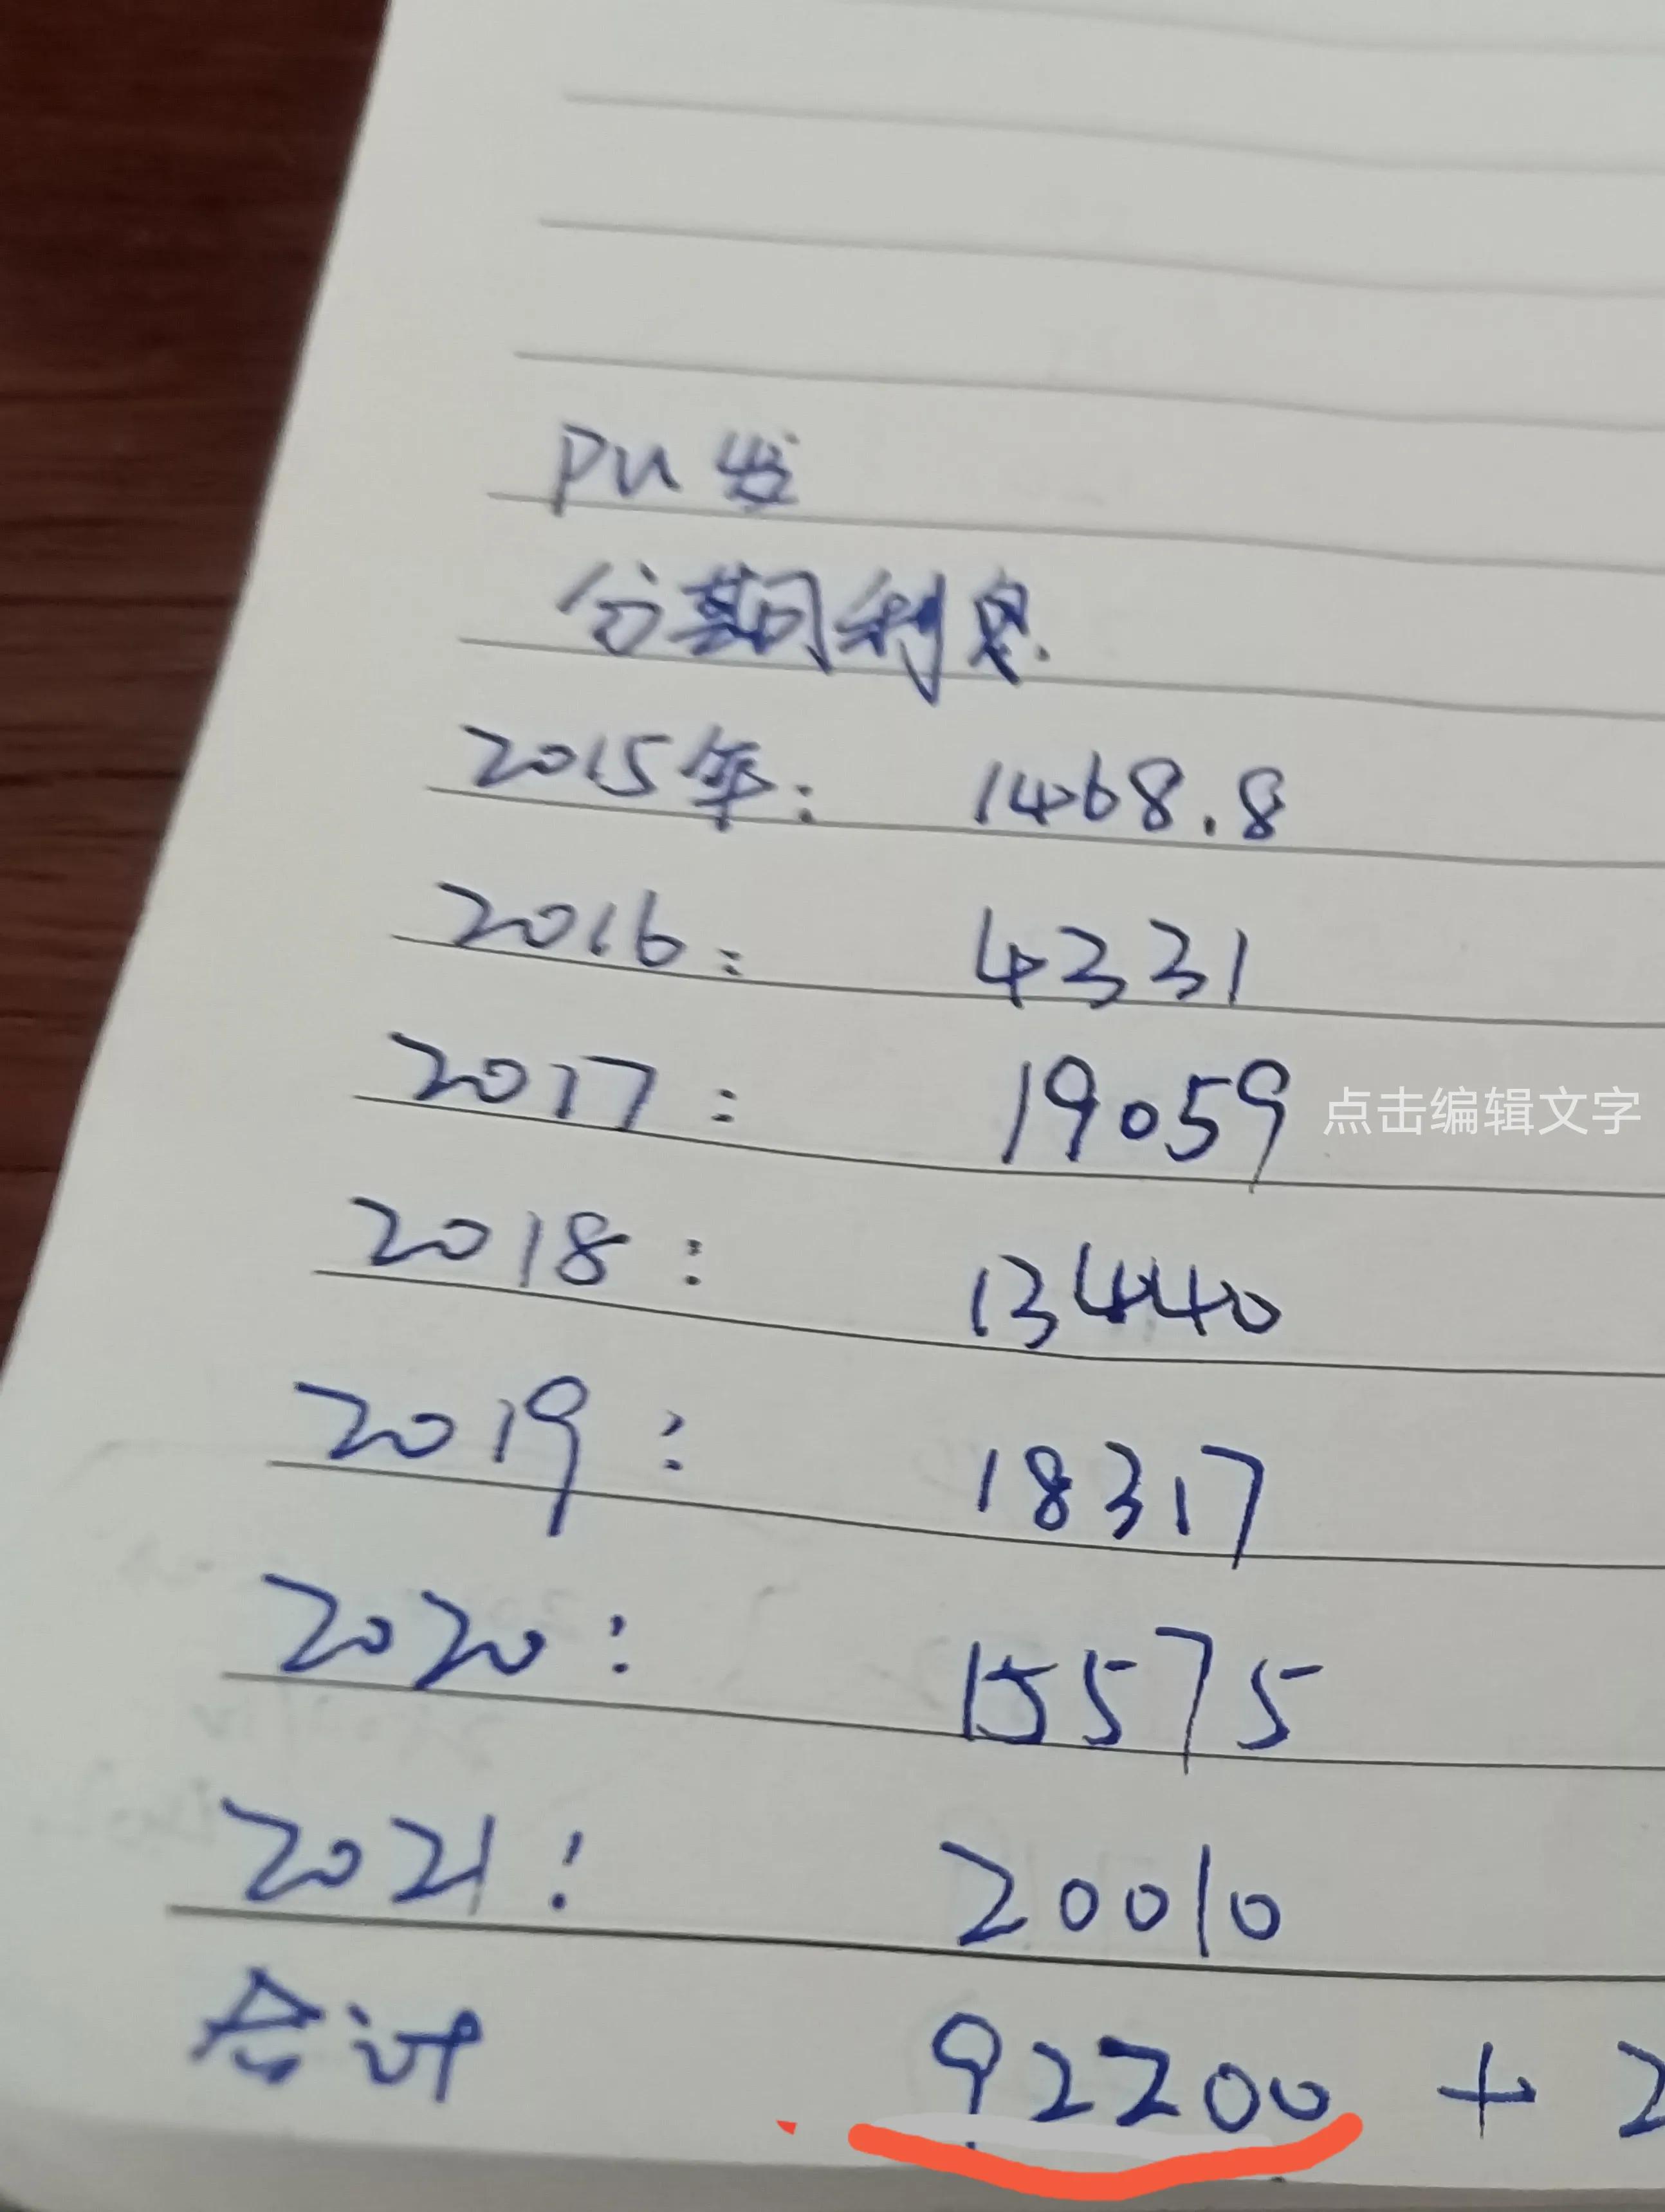 PU发
分期利息.
2015年: 1468.8
2016: 4331
2017: 19059 点击编辑文字
2018: 13440
2019: 18317
2020: 15575
2021: 20010
合计 92200 + 2